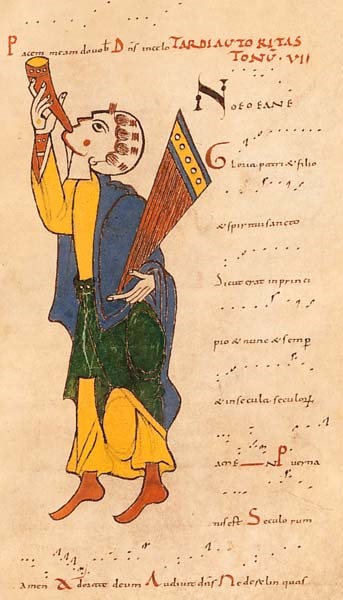 Pacem meam do vob Dns in celo TARDI AUTORITAS
TONU. VII
NOEOEANE
Gloria patri & filio
& spiritui sancto
Sicut erat in princi
pio & nunc & semp
& in secula seculor
amen Puer na
tus est Seculorum
amen Adorate deum Audivit dns